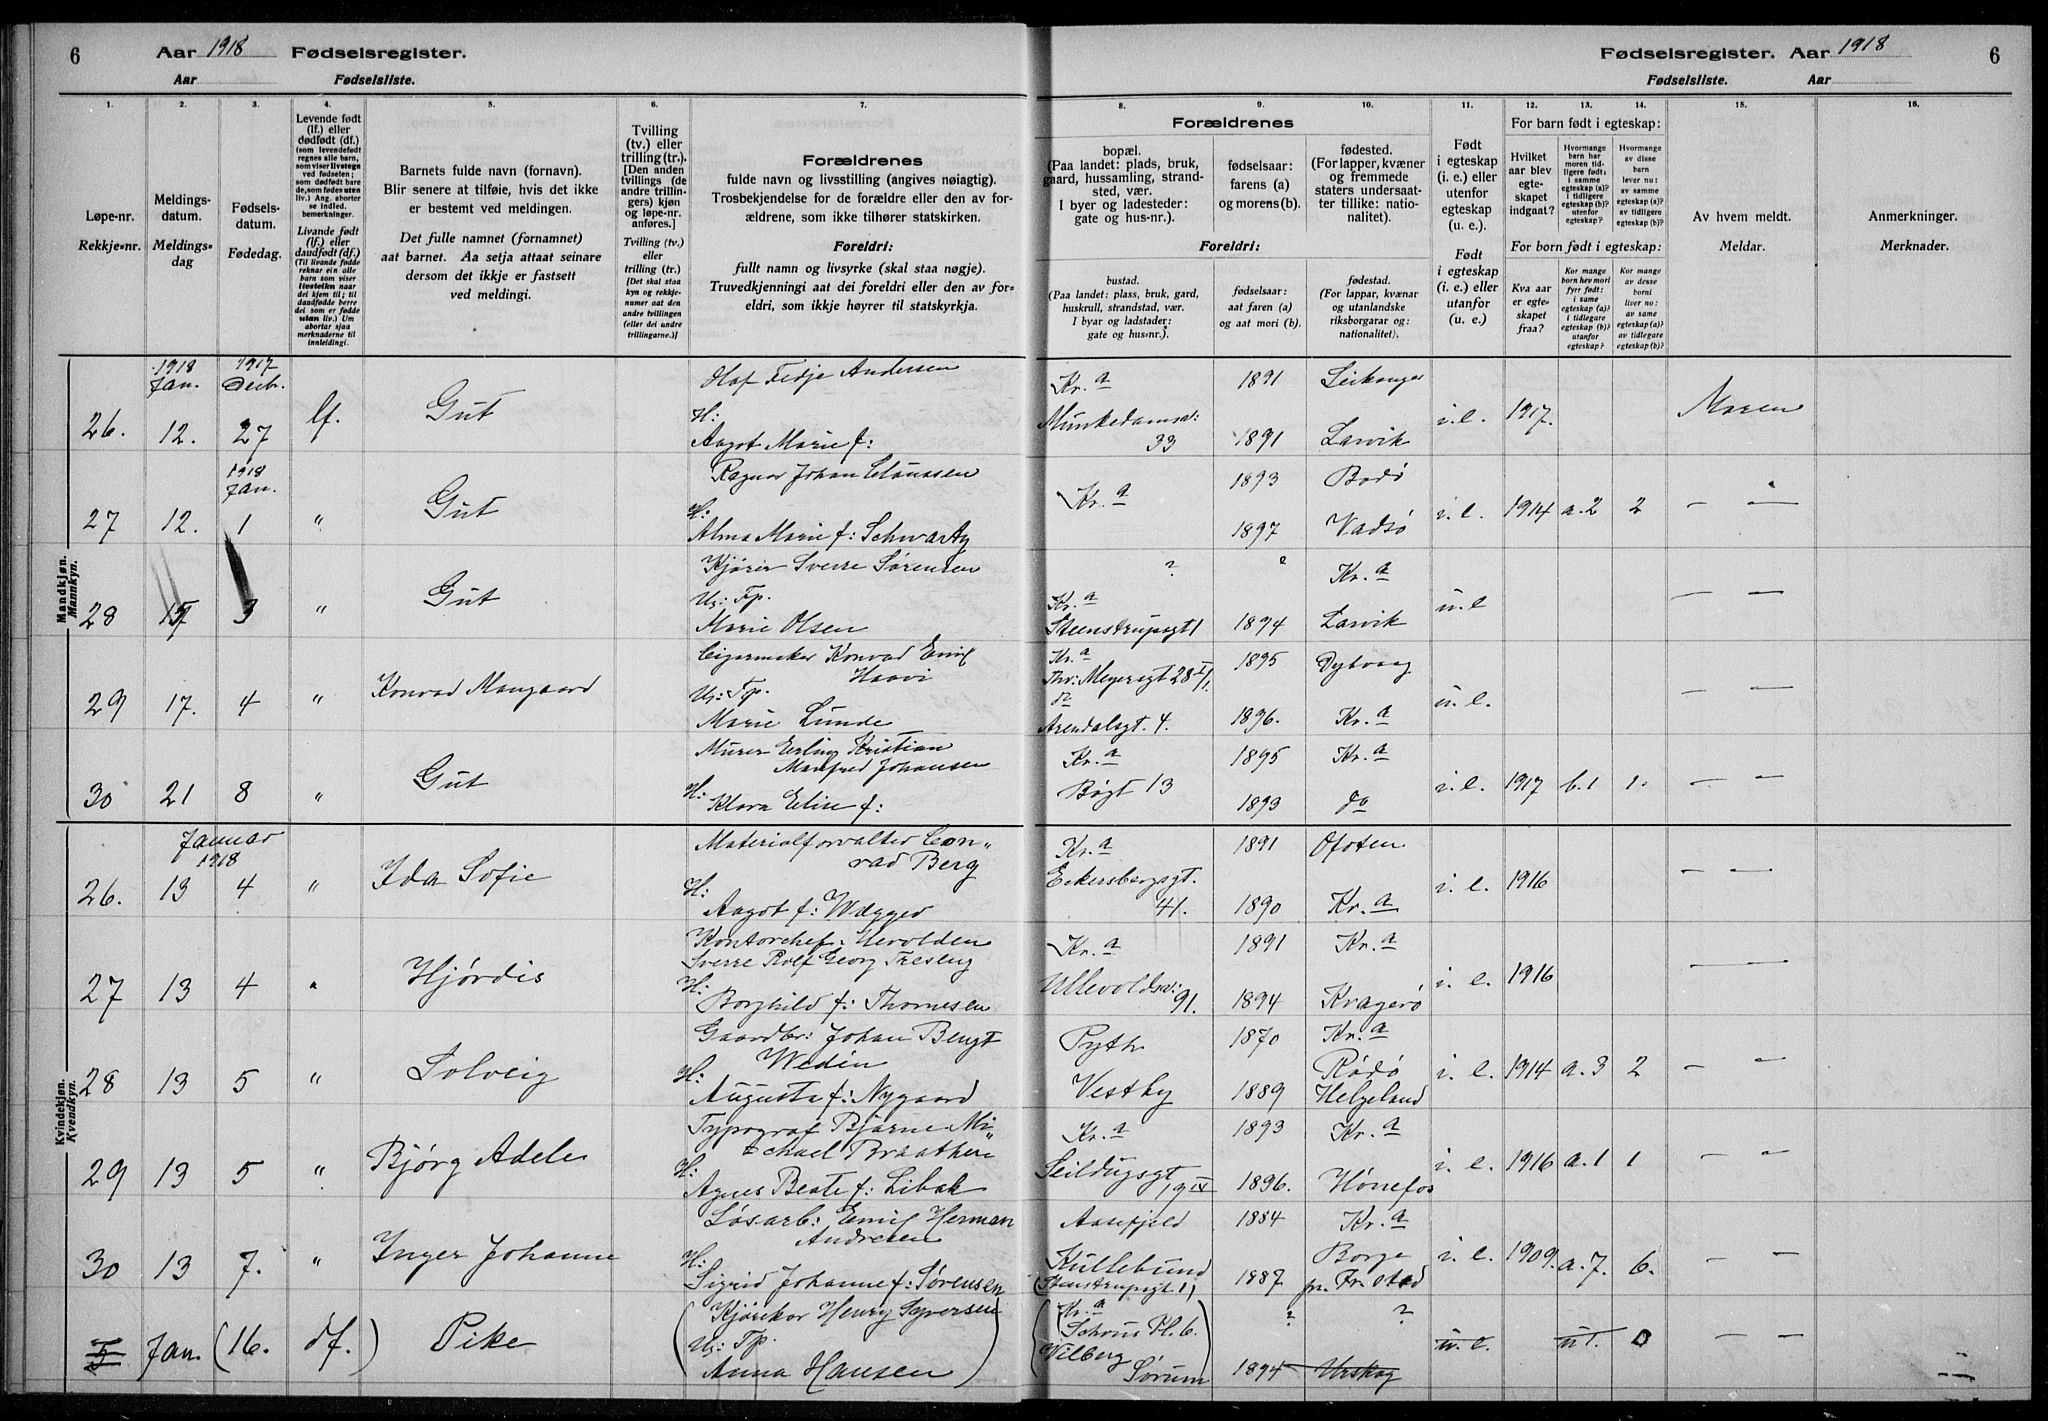 6 Aar 1918 Fødselsregister.
Aar Fødselsliste.
Fødselsregister. Aar 1918 6
Fødselsliste. Aar
1. 2. 3. 4. 5. 6. 7. 8. 9. 10. 11. 12. 13. 14. 15. 16.
Løpe-nr.
Rekkje-nr.
Meldings-
datum.
Meldings-
dag
Fødsels-
datum.
Fødedag.
Levende født
(lf.) eller
dødfødt (df.)
(som levendefødt
regnes alle barn,
som viser livstegn
ved fødselen;
som dødfødt bare
de, som fødes uten
liv.) Ang. aborter
se indled.
bemerkninger.
Livande født
(lf.) eller
daudfødt (df.)
(Til livande fødde
reknar ein alle
barn som viser
livsteikn naar
dei kjem til; til
daudfødde berre
dei som er fødde
utan liv.) Um
abortar sjaa
merknaderne til
innleidingi.
Barnets fulde navn (fornavn).
Blir senere at tilføie, hvis det ikke
er bestemt ved meldingen.
Det fulle namnet (fornamnet)
aat barnet. Aa setja attaat seinare
dersom det ikkje er fastsett
ved meldingi.
Tvilling
(tv.) eller
trilling (tr.).
[Den anden
tvillings (de
andre trillin-
gers) kjøn
og løpe-nr.
anføres.]
Tvilling (tv.)
eller
trilling (tr.)
[Det skal staa
kyn og rekkje-
numer aat den
andre tvillingen
(eller dei andre
trillingarne.)]
Forældrenes
fulde navn og livsstilling (angives nøiagtig).
Trosbekjendelse for de forældre eller den av for-
ældrene, som ikke tilhører statskirken.
Foreldri:
fullt namn og livsyrke (skal staa nøgje).
Truvedkjenningi aat dei foreldri eller den av for-
eldri, som ikkje høyrer til statskyrkja.
Forældrenes
bopæl.
(Paa landet: plads, bruk,
gaard, hussamling, strand-
sted, vær.
I byer og ladesteder:
gate og hus-nr.).
fødselsaar:
farens (a)
og morens (b).
fødested.
(For lapper, kvæner
og fremmede
staters undersaat-
ter tillike: natio-
nalitet).
Foreldri:
bustad.
(Paa landet: plass, bruk, gard,
huskrull, strandstad, vær.
I byar og ladstader:
gate og hus-nr.).
fødselsaar:
aat faren (a)
og aat mori (b).
fødestad.
(For lappar, kvænar
og utanlandske
riksborgarar og:
nationalitet).
Født
i egteskap
(i. e.) eller
utenfor
egteskap
(u. e.).
Født
i egteskap
(i. e.) eller
utanfor
(u. e.).
For barn født i egteskap:
Hvilket
aar blev
egte-
skapet
indgaat?
Hvormange
barn har
moren tid-
ligere født:
i samme
egteskap (a)?
i tidligere
egteskap (b)?
utenfor
egteskap?
Hvormange
av disse
barn
lever nu:
av samme
egteskap (a)?
av tidligere
egteskap (b)?
For born født i egteskap:
Kva aar
er egte-
skapet
fraa?
Kor mange
born hev mori
fyrr født:
i same
egteskap (a)?
i tidlegare
egteskap (b)?
utanfor
egteskap?
Kor mange
av desse
borni
liver no:
av same
egteskap (a)?
av tidlegare
egteskap (b)?
Av hvem meldt.
Meldar.
Anmerkninger.
Merknader.
Mandkjøn.
Mannkyn.
1918 Jan. 1917 Decb.
26. 12. 27 lf. Gut Olaf Fedje Andersen
H:
Aagot Marie f:
Kr.a Munkedamsv: 33 1891 Leikanger
1891 Larvik i.e. 1917. Moren
1918 Jan.
27 12. 1 " Gut Ragnar Johan Claussen
H:
Alma Marie f: Schwartz
Kr.a 1893 Bodø
1897 Vadsø i.e. 1914 a.2 2 — —
28 15 3 " Gut Kjører Sverre Sørensen
Ug: Tp.
Marie Olsen
? ? Kr.a
Kr.a Steenstrupsgt 1 1894 Larvik u.e — —
29 17. 4 " Konrad Mangaard Cigarmaker Konrad Emil
Haavi
Ug: Tp.
Marie Lunde
Kr.a Thv: Meyersgt 28 1895 Dybvaag
do Arendalsgt. 4. 1896. Kr.a u.e. — —
30 21 8 " Gut Murer Erling Kristian
Manfred Johansen
H:
Klara Elise f:
Kr.a Bøgt 13 1895 Kr.a
1893 do i.e. 1917 b.1 1. — —
Kvindekjøn.
Kvendkyn.
Januar
1918
26. 13 4 " Ida Sofie Materialforvalter Con-
rad Berg
H:
Aagot f: Wægger
Kr.a Eckersbergsgt. 41. 1891 Ofoten
1890 Kr.a i.e. 1916 — —
27 13 4 " Hjørdis Kontorchef
Sverre Rolf Georg Treseng
H:
Borghild f: Thornesen
Kr.a Ullevoldsv: 91. 1891 Kr.a
1894 Kragerø i.e. 1916 — —
28 13 5 " Solveig Gaardbr: Johan Bengt
Wedin
H:
Augusta f: Nygaard
Pyth Vestby 1870 Kr.a
1889 Rødø Helgeland i.e. 1914 a.3 2 — —
29 13 5 " Bjørg Adele Typograf Bjarne Mi-
chael Braathen
H:
Agnes Beate f: Libak
Kr.a Seildugsgt 1893 Kr.a
1896. Hønefos i.e. 1916 a.1 1 — —
30 13 7. " Inger Johanne Løsarb: Emil Herman
Andresen
H:
Sigrid Johanne f: Sørensen
Aasefjeld Kullebund (Stenstrupsgt 1) 1884 Kr.a
1887 Borge pr. Fr.stad i.e. 1909. a.7. 6. — —
Jan. (16. df.) Pike (Kjørekar Henry Syversen
Ug: Tp
Anna Hansen)
(Kr.a Schous Pl. 6.) ? ?
Vilberg Sørum 1894 Urskog u.e. 0 — —